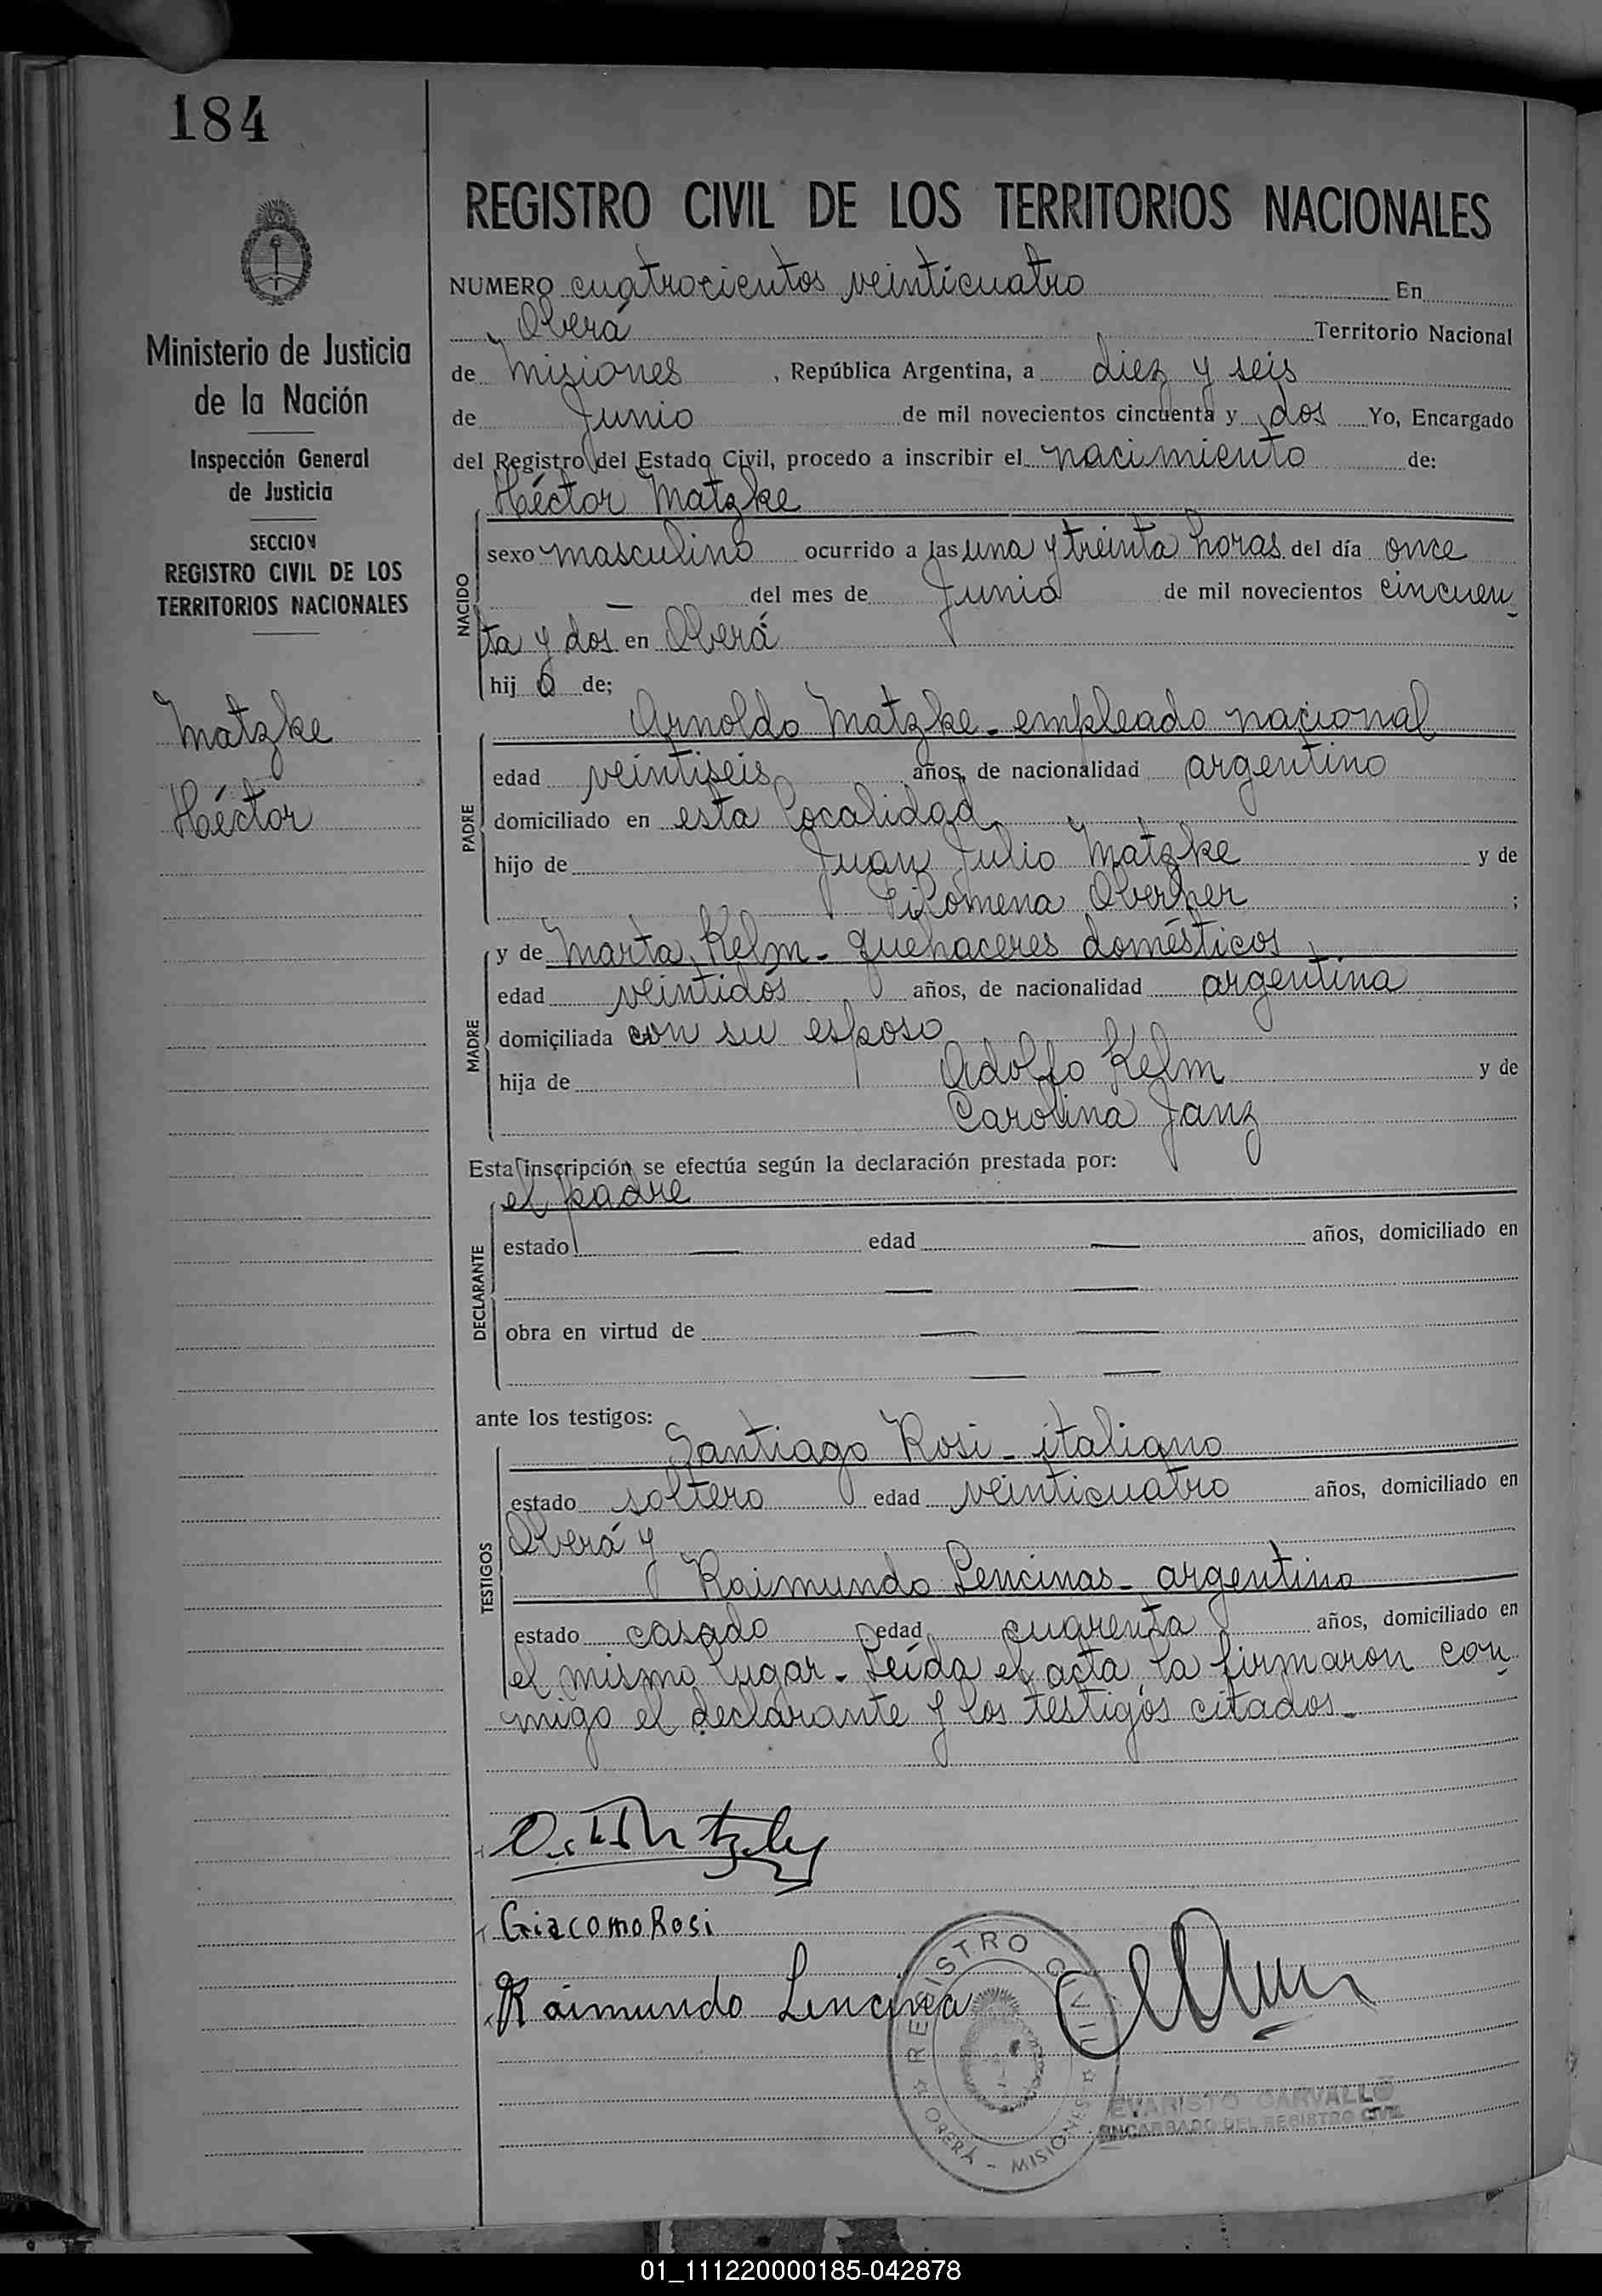 184
REGISTRO CIVIL DE LOS TERRITORIOS NACIONALES
Ministerio de Justicia
de la Nación
Inspección General
de Justicia
SECCION
REGISTRO CIVIL DE LOS
TERRITORIOS NACIONALES
Matzke
Héctor
NUMERO cuatrocientos veinticuatro En
Oberá Territorio Nacional
de Misiones, República Argentina, a diez y seis
de Junio de mil novecientos cincuenta y dos Yo, Encargado
del Registro del Estado Civil, procedo a inscribir el nacimiento de:
Héctor Matzke
NACIDO
sexo masculino ocurrido a las una y treinta horas del día once
— del mes de Junio de mil novecientos cincuen
ta y dos en Oberá
hij o de;
Arnoldo Matzke - empleado nacional
PADRE
edad veintiseis años, de nacionalidad argentino
domiciliado en esta localidad
hijo de Juan Julio Matzke y de
Filomena ;
y de Marta Kelm - quehaceres domésticos
MADRE
edad veintidós años, de nacionalidad argentina
domiciliada con su esposo
hija de Adolfo Kelm y de
Carolina Janz
Esta inscripción se efectúa según la declaración prestada por:
el padre
DECLARANTE
estado — edad — años, domiciliado en
— —
obra en virtud de — —
— —
ante los testigos:
Santiago Rosi - italiano
TESTIGOS
estado soltero edad veinticuatro años, domiciliado en
Oberá y
Raimundo Lencinas - argentino
estado casado edad cuarenta años, domiciliado en
el mismo lugar - Leída el acta, la firmaron con
migo el declarante y los testigos citados -
Giacomo Rosi
Raimundo Lencina
REGISTRO CIVIL
OBERÁ - MISIONES
EVARISTO CARVALLO
ENCARGADO DEL REGISTRO CIVIL
01_111220000185-042878